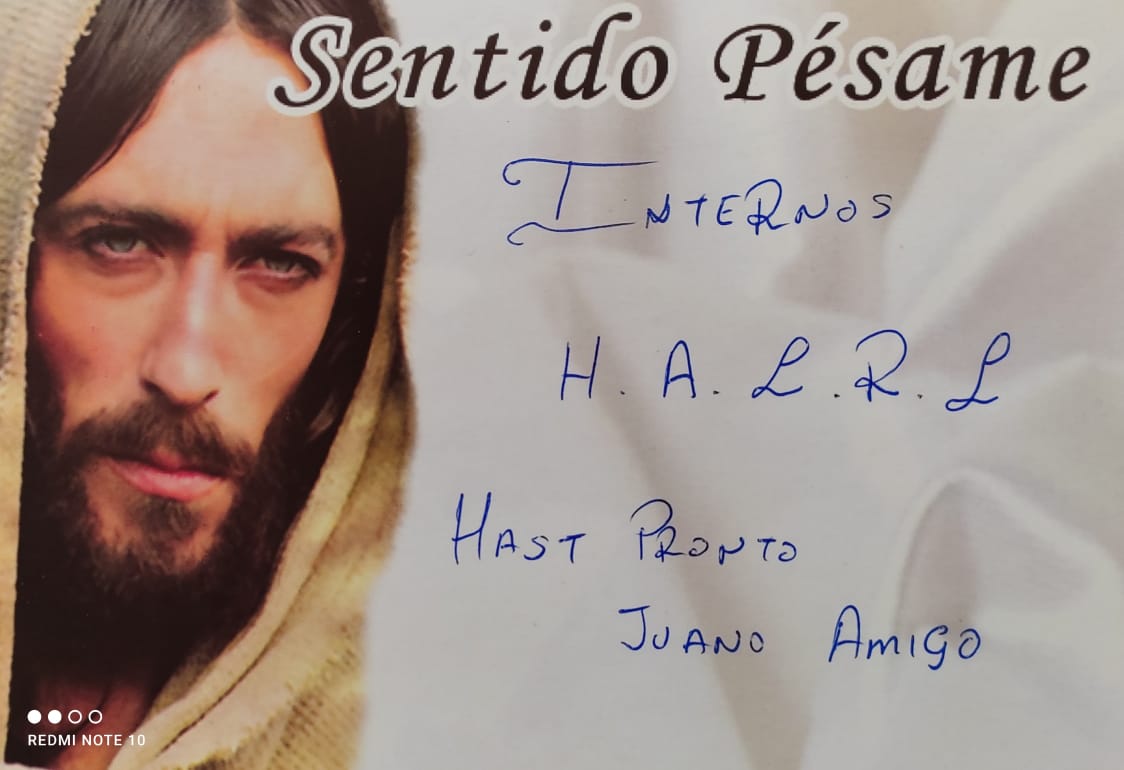 Sentido Pésame
INTERNOS
H. A. L. R. L
HAST PRONTO
JUANO AMIGO
REDMI NOTE 10